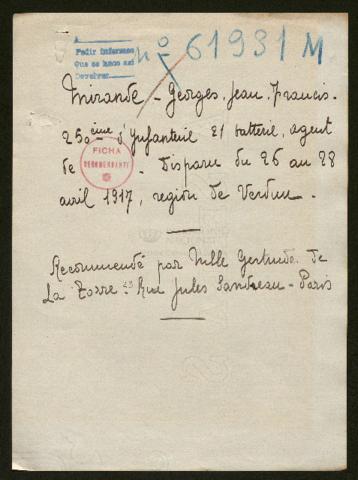 A
Pedir informes
Que se haga así
Devolver
nº 61931 M
Mirande - Georges, Jean, Francis -
250 ème d'Infanterie 21 batterie, agent
de . Disparu du 26 au 28
FICHA
RECOMMENDANTE
avril 1917, region de Verdun -
Recommendé par Mlle Gertrude de
La Torre 23 Rue Jules Sandeau - Paris